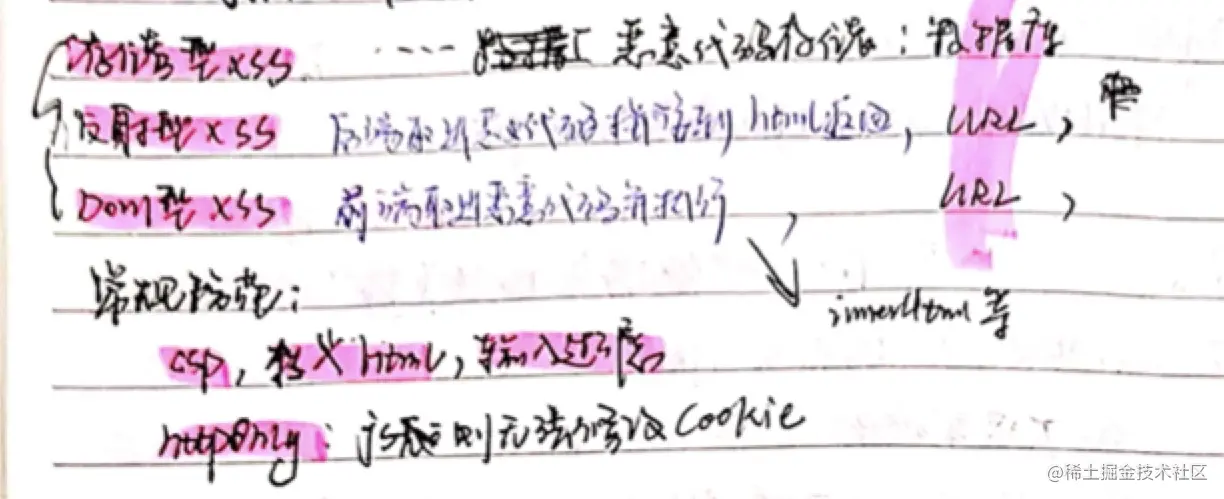 存储型XSS .... 恶意代码存储：数据库
反射型XSS 后端取出恶意代码拼接到html返回，URL，
Dom型XSS 前端取出恶意代码并执行， URL，
常规防范： innerHtml等
csp，转义html，输入过滤
httpOnly：js则无法修改Cookie
@稀土掘金技术社区